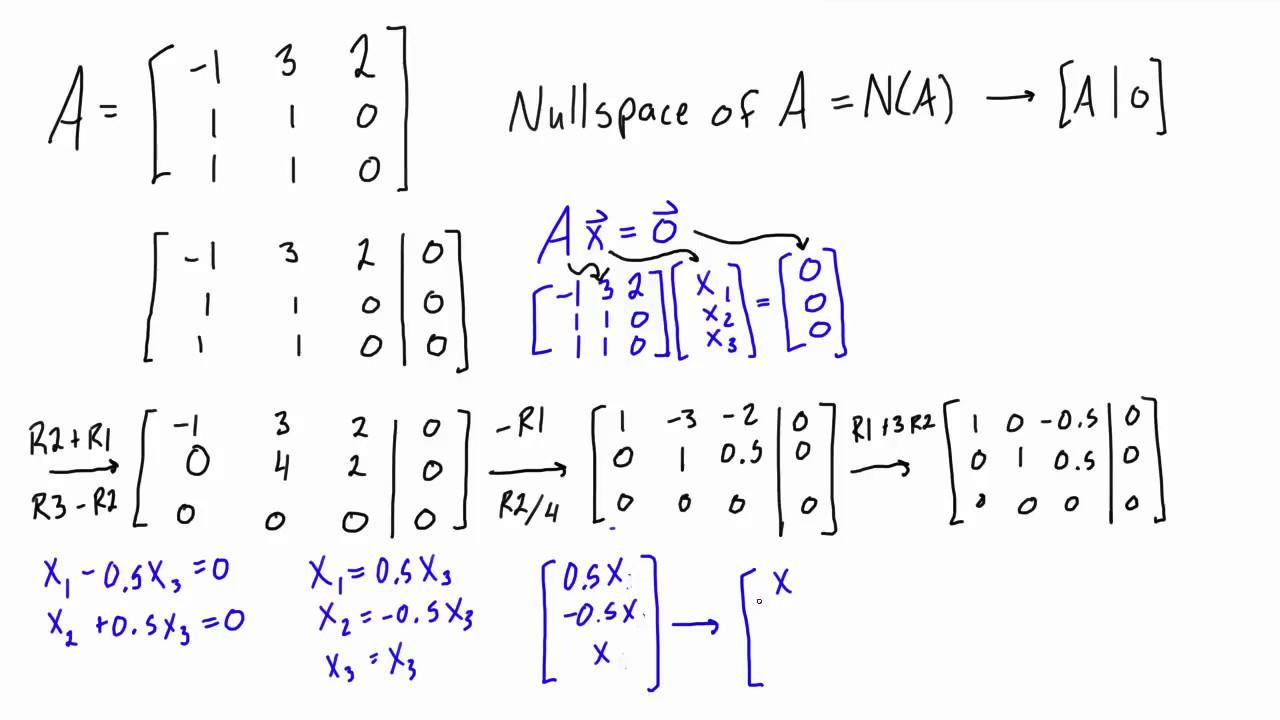 A = [ -1 3 2
1 1 0
1 1 0 ]
Nullspace of A = N(A) → [A | 0]
[ -1 3 2 | 0
1 1 0 | 0
1 1 0 | 0 ]
A x⃗ = 0⃗
[ -1 3 2
1 1 0
1 1 0 ] [ x₁
x₂
x₃ ] = [ 0
0
0 ]
R2 + R1
→
R3 - R2
[ -1 3 2 | 0
0 4 2 | 0
0 0 0 | 0 ]
-R1
→
R2/4
[ 1 -3 -2 | 0
0 1 0.5 | 0
0 0 0 | 0 ]
R1 +3 R2
→
[ 1 0 -0.5 | 0
0 1 0.5 | 0
0 0 0 | 0 ]
x₁ - 0.5x₃ = 0
x₂ + 0.5x₃ = 0
x₁ = 0.5x₃
x₂ = -0.5x₃
x₃ = x₃
[ 0.5x
-0.5x
x ] → [ x